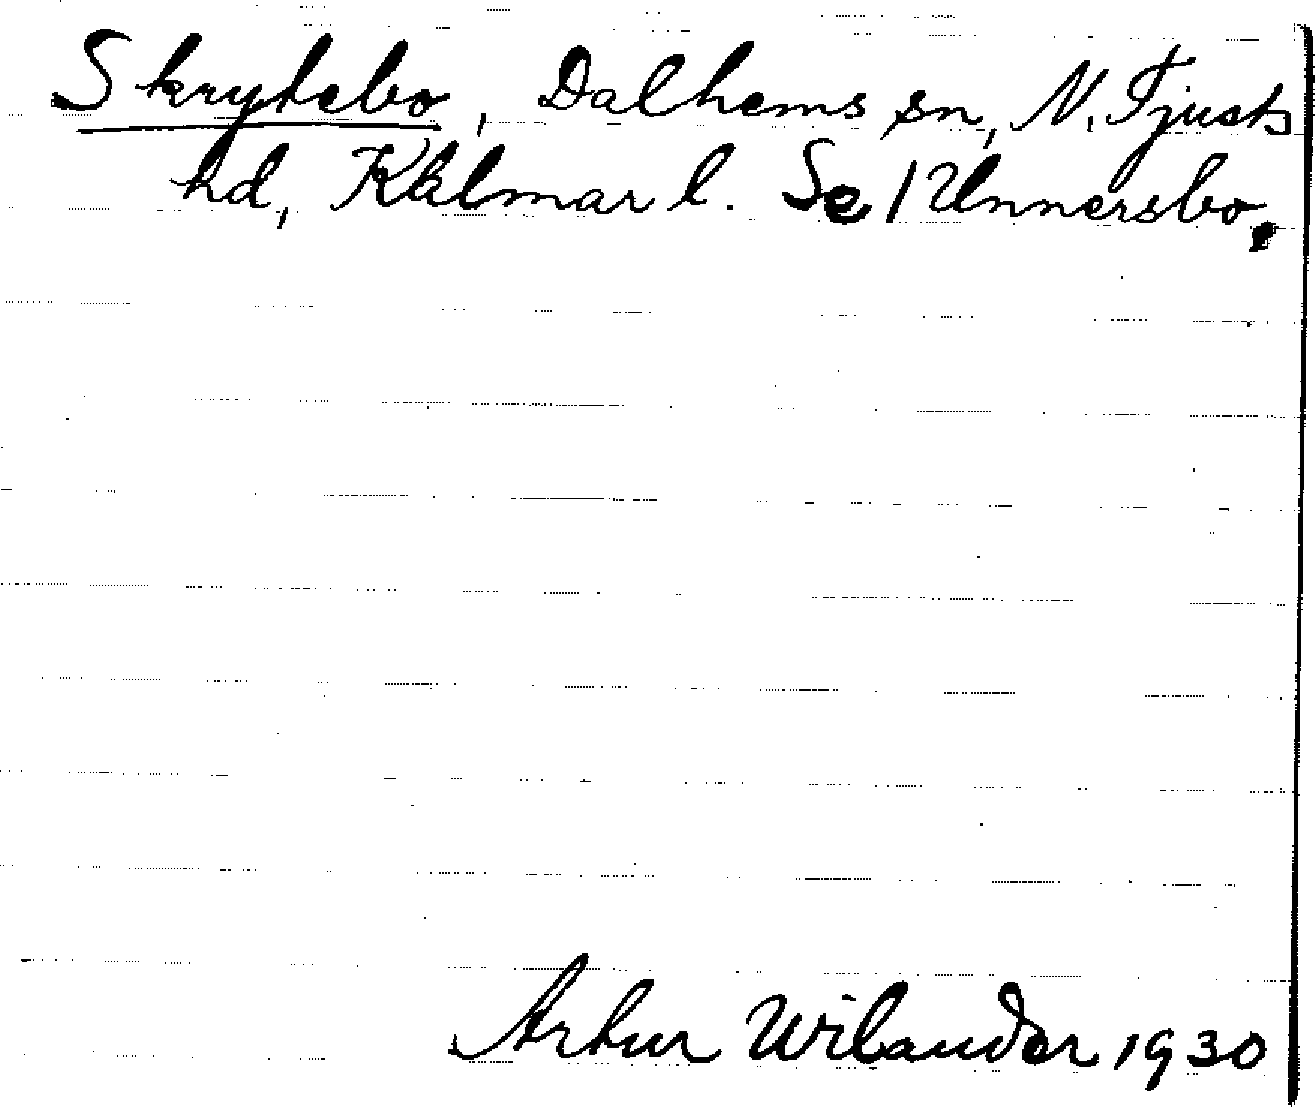 Skrytebo, Dalhems sn, N. Tjusts
hd, Kalmar l. Se / Unnersbo.
Artur Wilander 1930